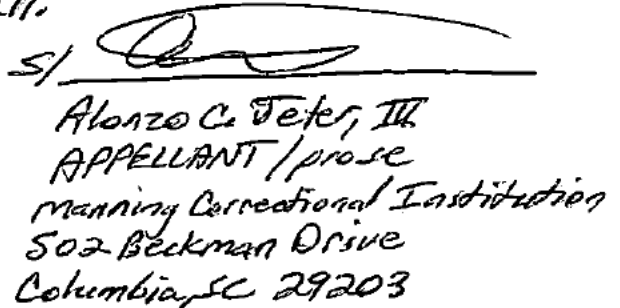 s/
Alonzo C. Jeter, III
APPELLANT/prose
Manning Correctional Institution
502 Beckman Drive
Columbia, SC 29203